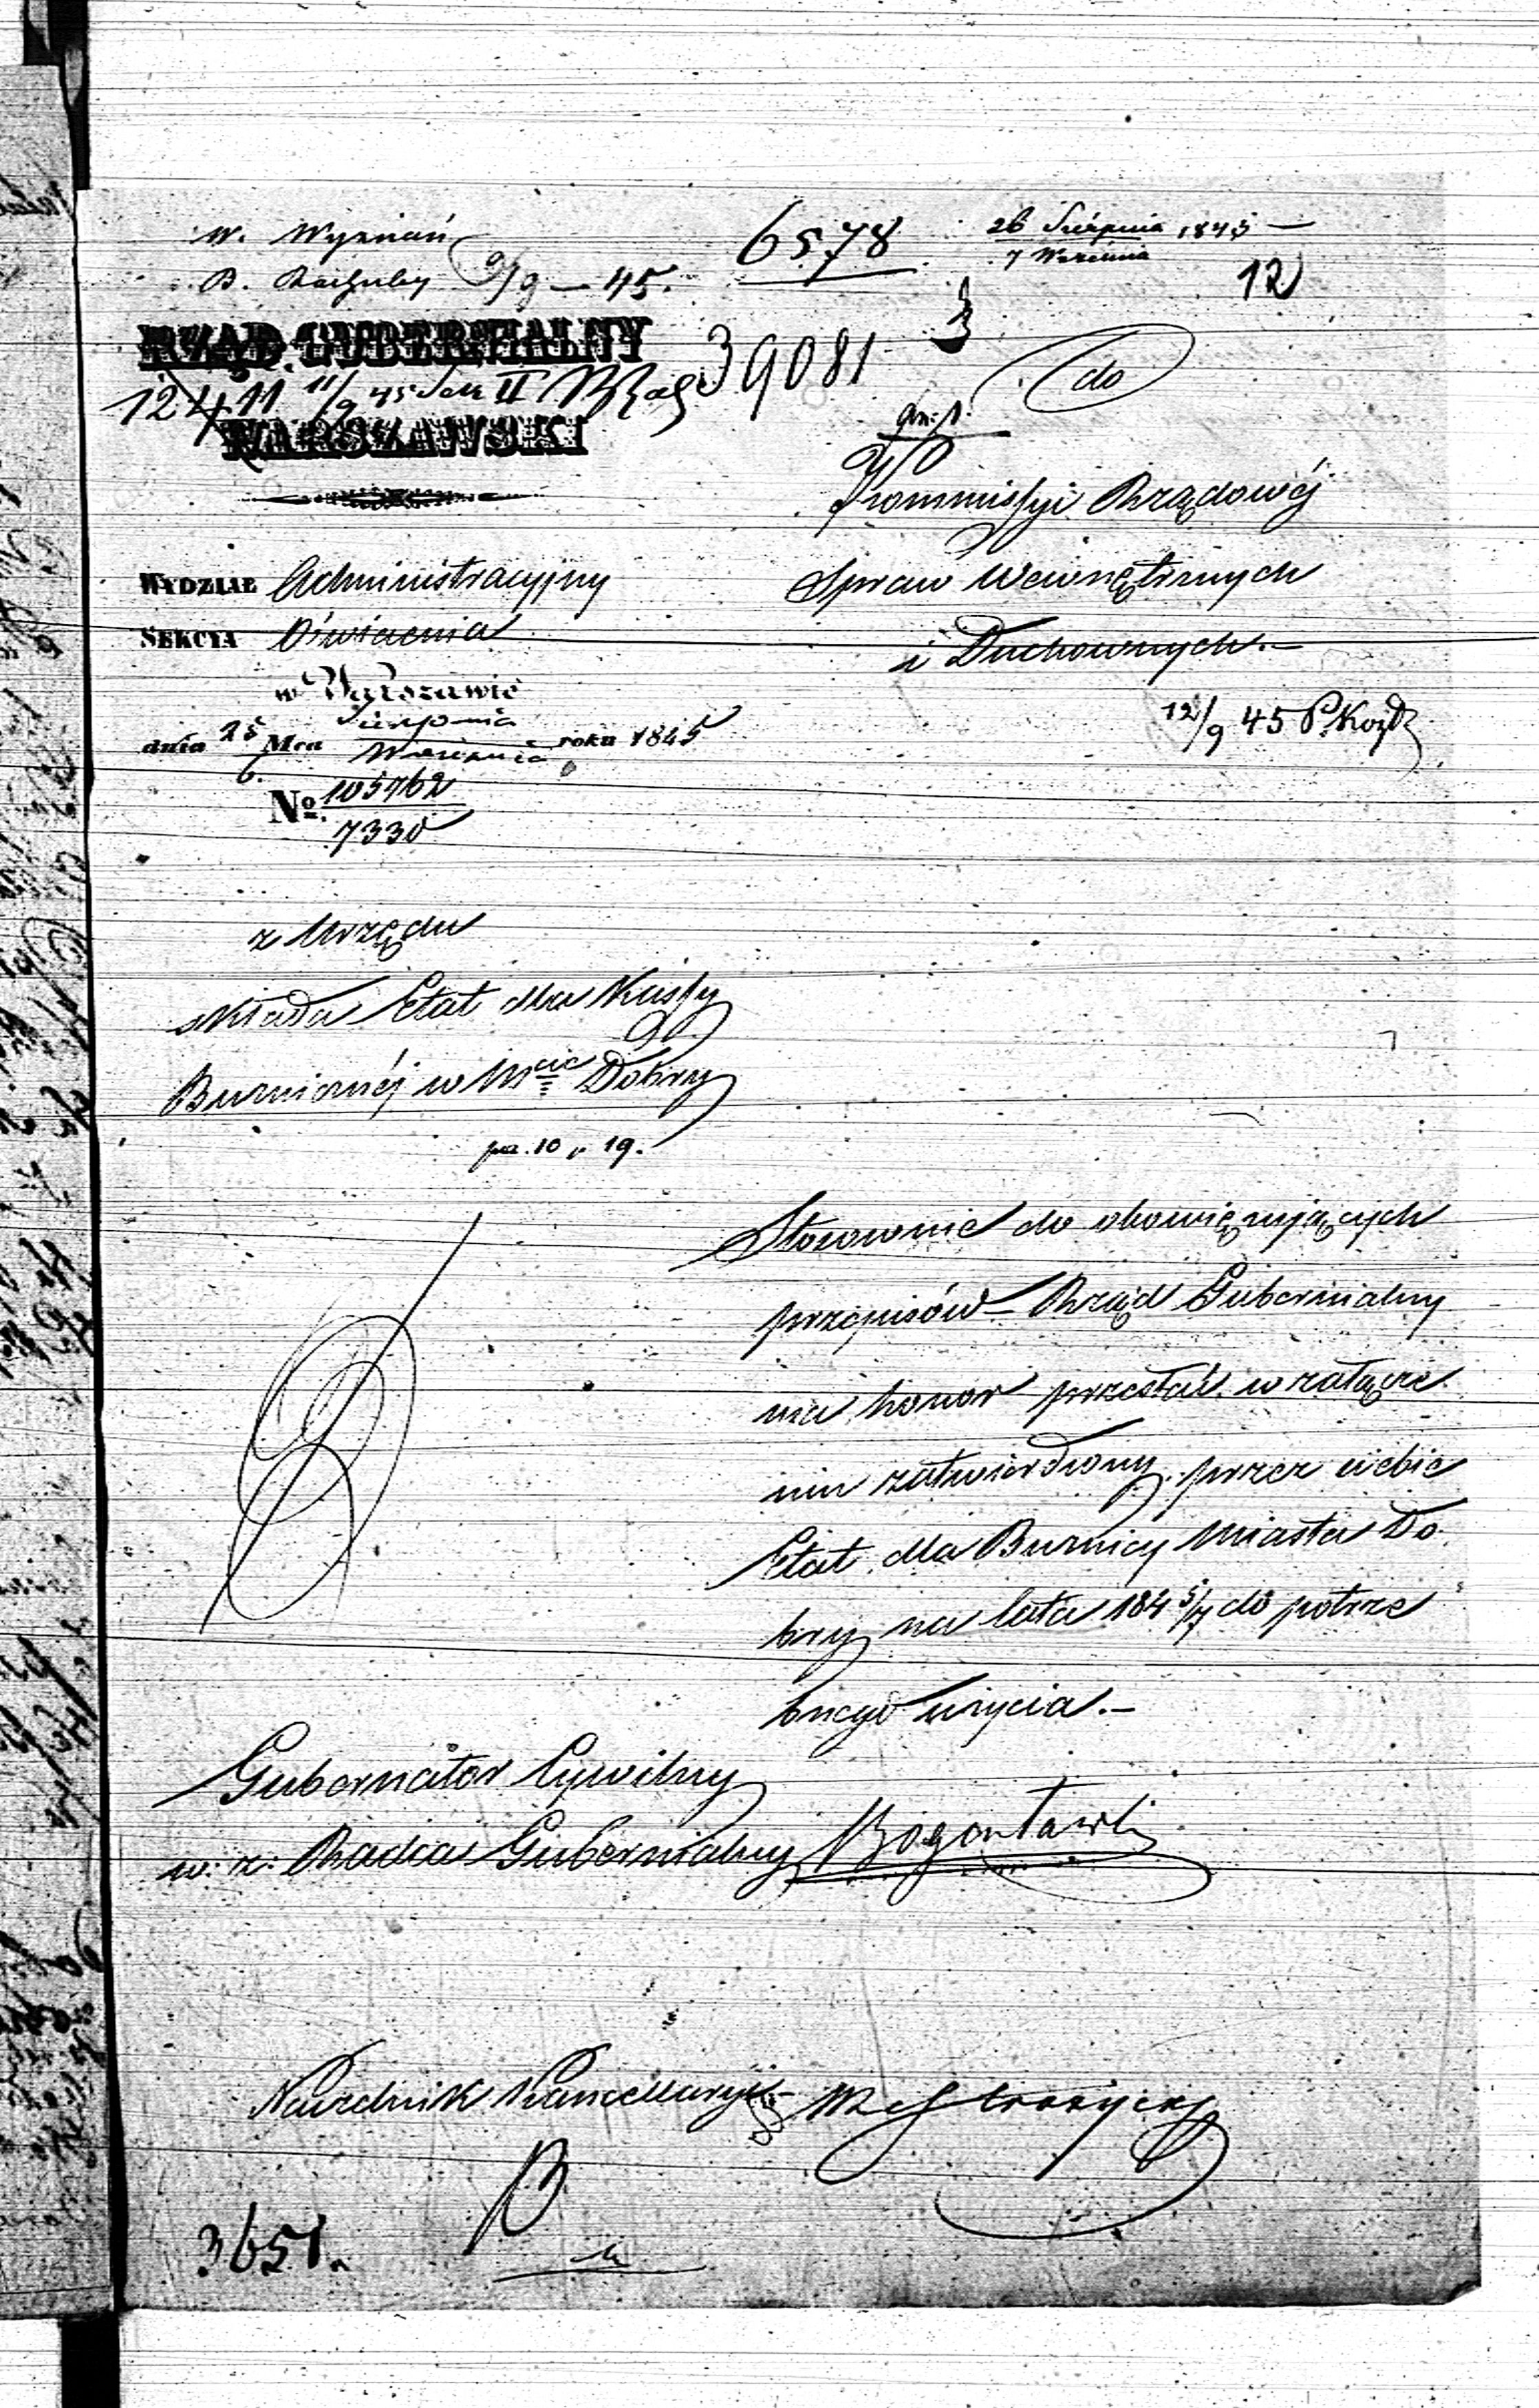 W. Wyznań
B. Rachuby 9/9 — 45.
6578
26 Sierpnia 1845 —
7 Września
12
RZĄD GUBERNIALNY
39081
12411 11/9 45 Sek II
WARSZAWSKI
do
Kommissyi Rządowéj
Spraw Wewnętrznych
i Duchownych.—
12/9 45
WYDZIAŁ Administracyjny
SEKCYA Oświecenia
w Warszawie
dnia 25/6. Mca Sierpnia/Września roku 1845
No. 105762/7330
z Urzędu
składa Etat dla Kassy
Bużniczéj w Mcie Dobry
10 19.
Stosownie do obowięzujących
przepisów — Rząd Gubernialny
ma honor przesłać w załącze
niu zatwierdzony przez siebie
Etat dla Bużnicy Miasta Do
bry na lata 184 5/7 do potrze
bnego użycia.—
Gubernator Cywilny
w: z: Radca Gubernialny
Naczelnik Kancellaryi
3651.